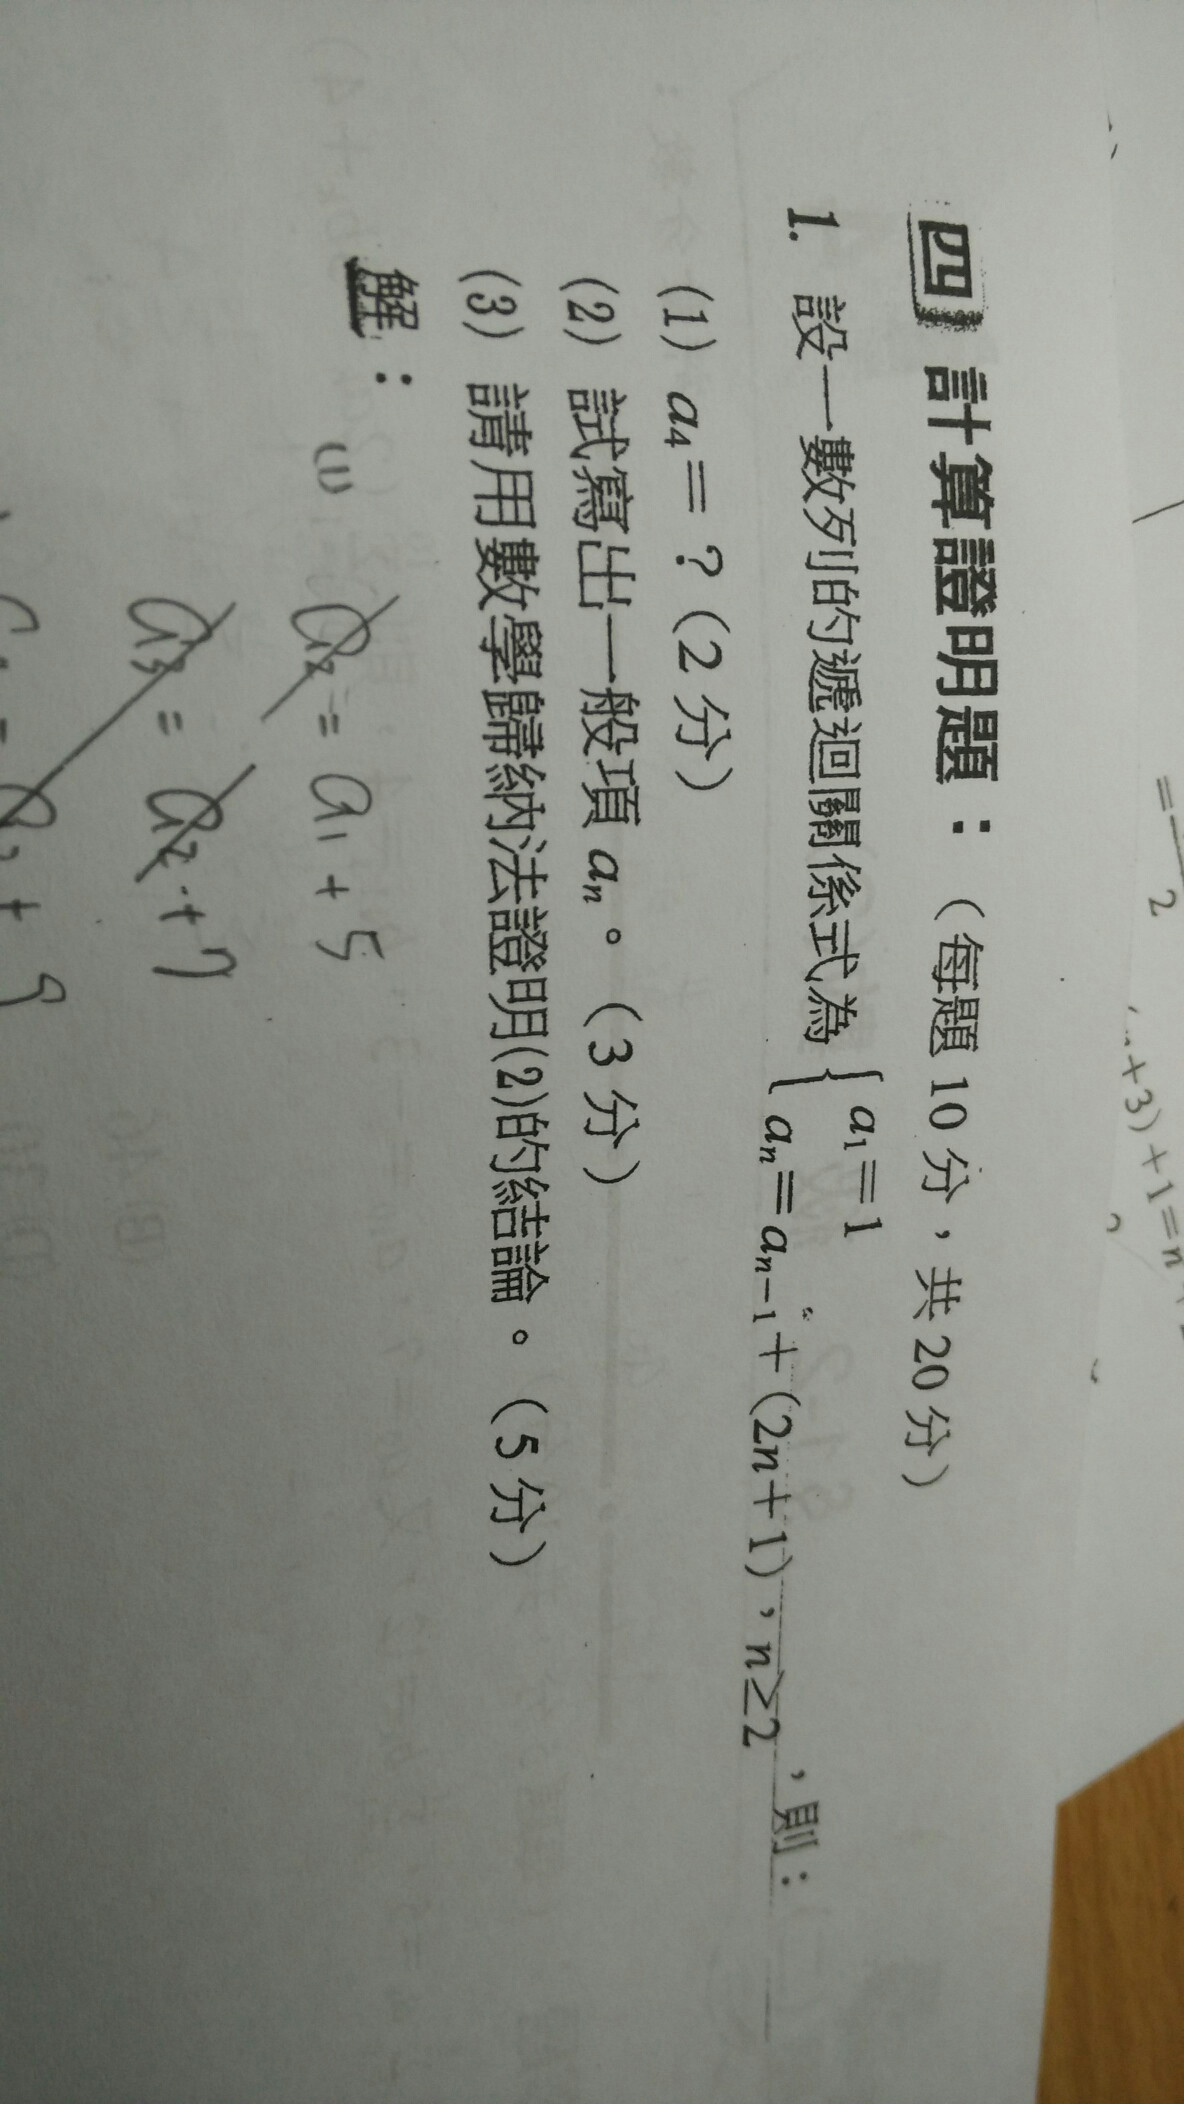 四、計算證明題：（每題10分，共20分）
1. 設一數列的遞迴關係式為 { a₁=1
aₙ=aₙ₋₁+(2n+1)，n≥2 ，則：
(1) a₄=？(2分)
(2) 試寫出一般項 aₙ。(3分)
(3) 請用數學歸納法證明(2)的結論。(5分)
解：
(1) a₂ = a₁ + 5
a₃ = a₂ + 7
+ 9
= 2
+3)+1=n